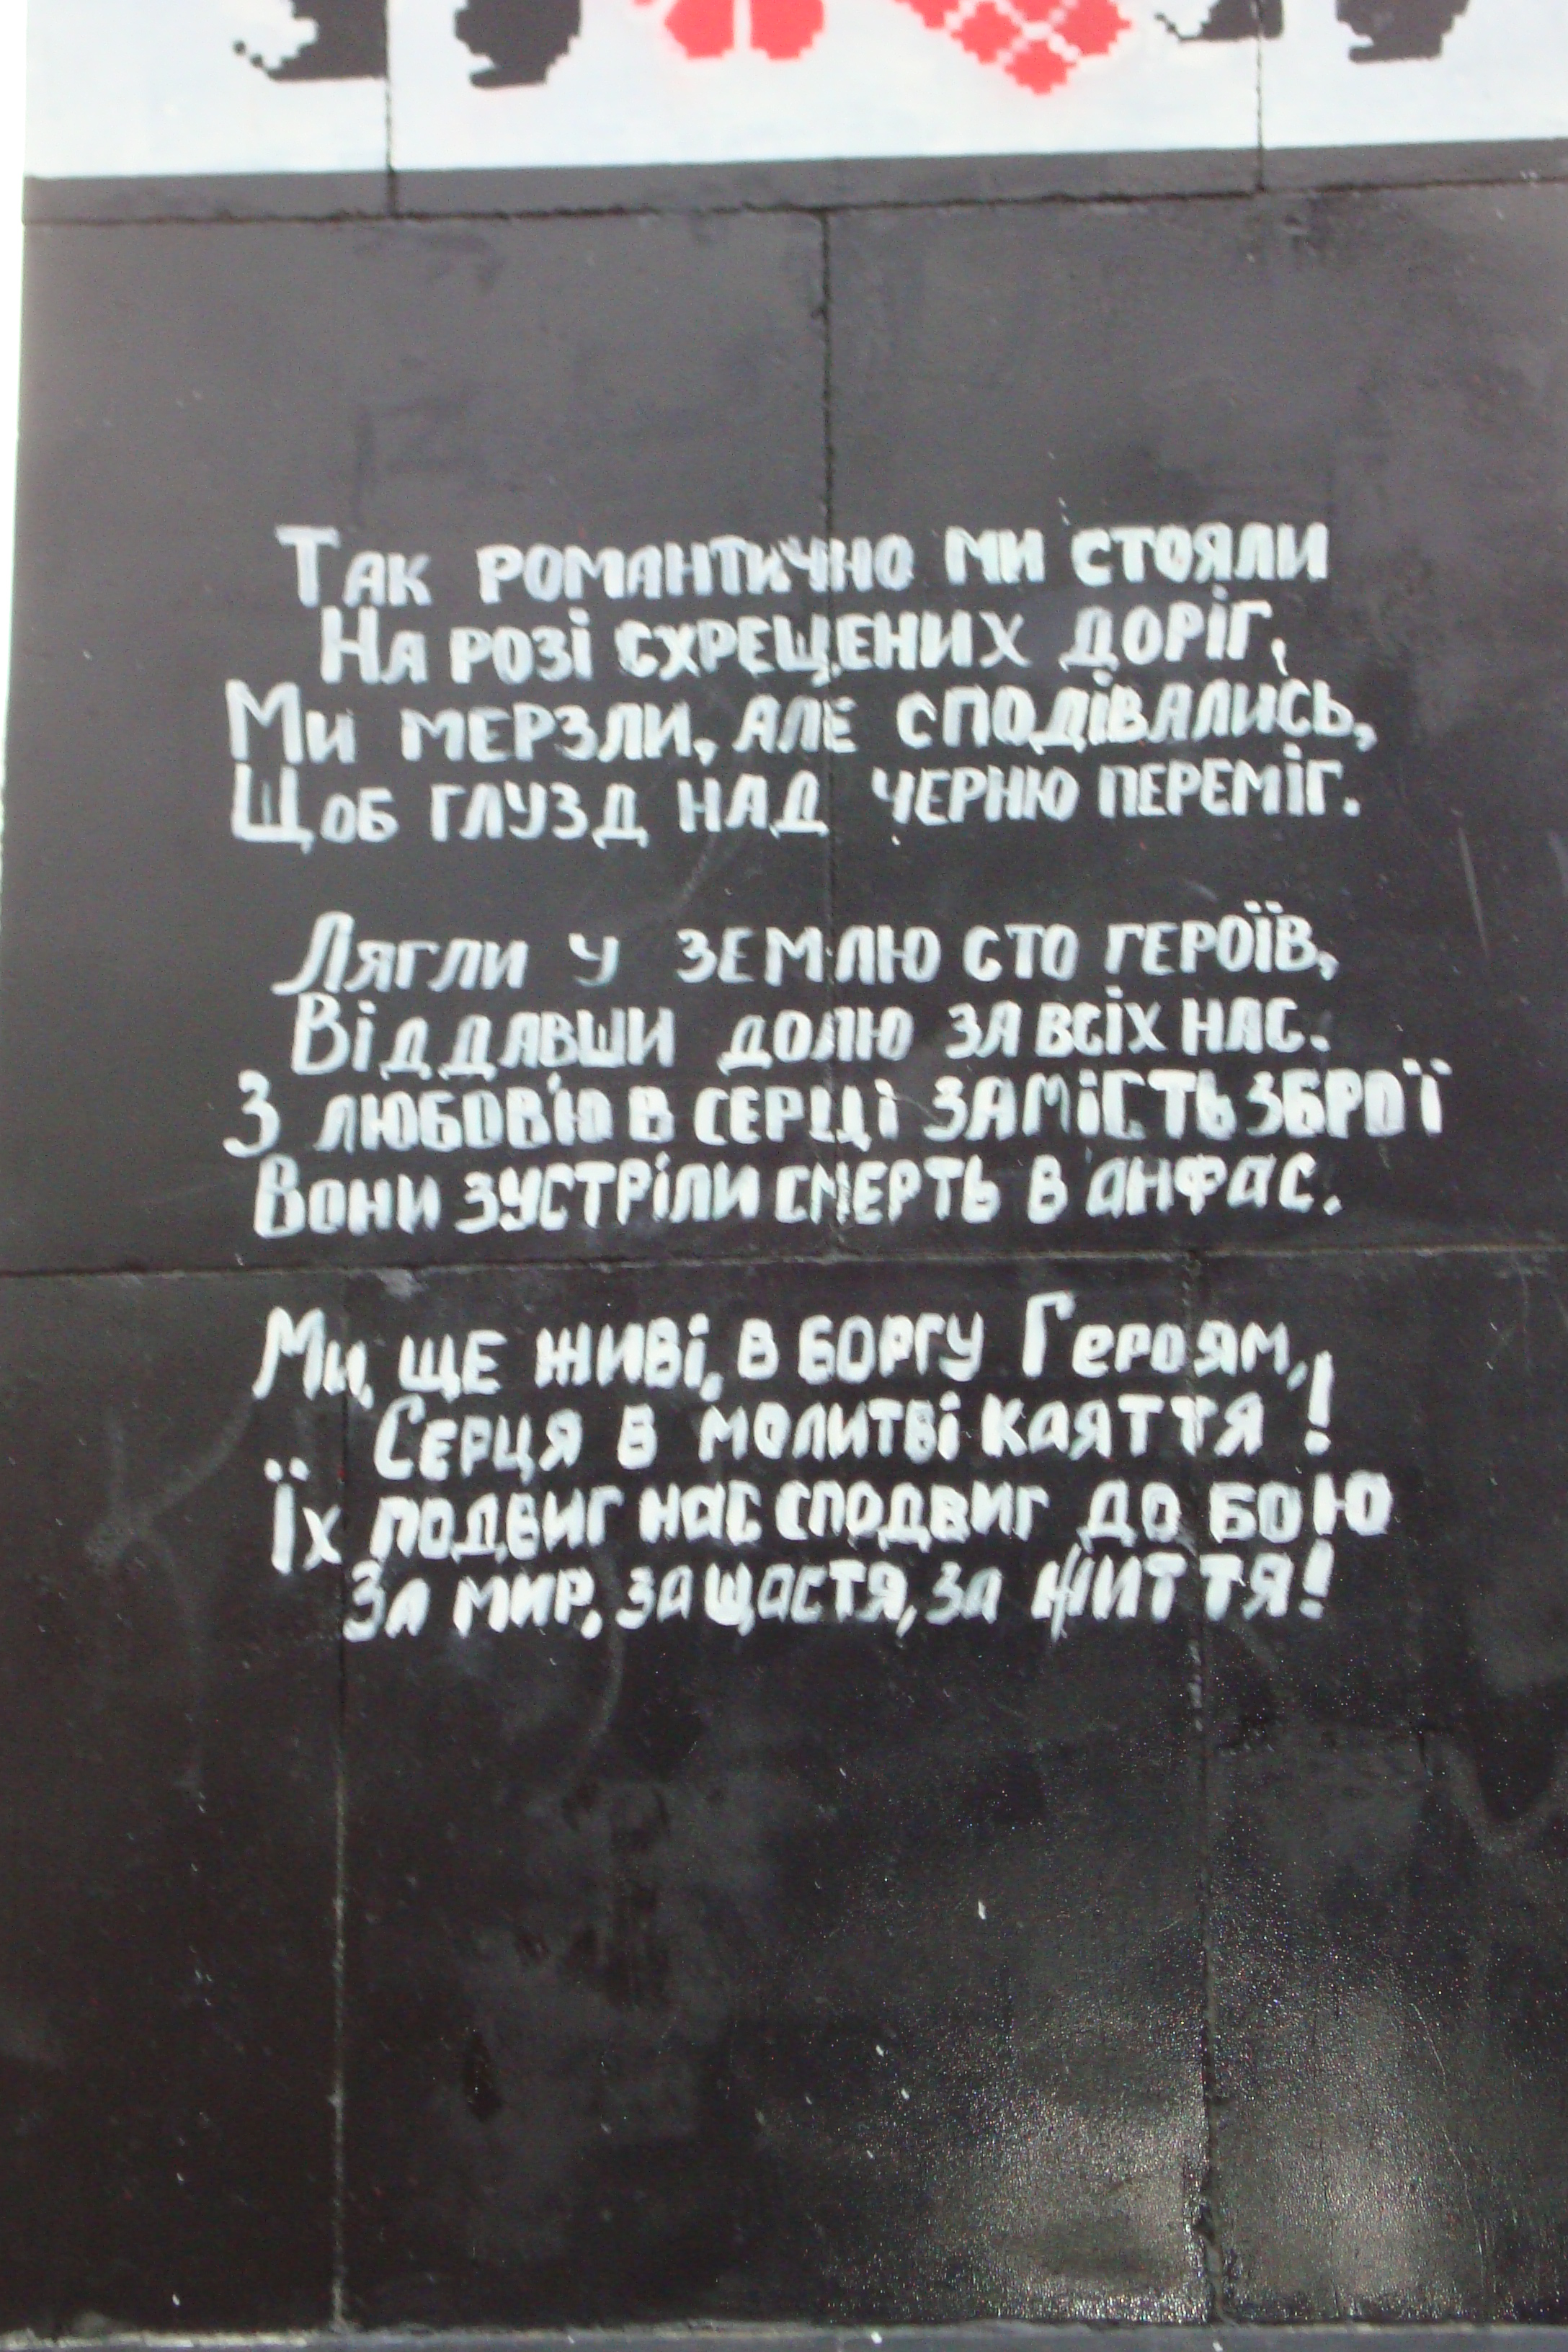 Так романтично ми стояли
На розі схрещених доріг,
Ми мерзли, але сподівались,
Щоб глузд над черню переміг.
Лягли у землю сто героїв,
Віддавши долю за всіх нас.
З любов'ю в серці замість зброї
Вони зустріли смерть в анфас.
Ми, ще живі, в боргу Героям,
Серця в молитві каяття!
Їх подвиг нас сподвиг до бою
За мир, за щастя, за життя!